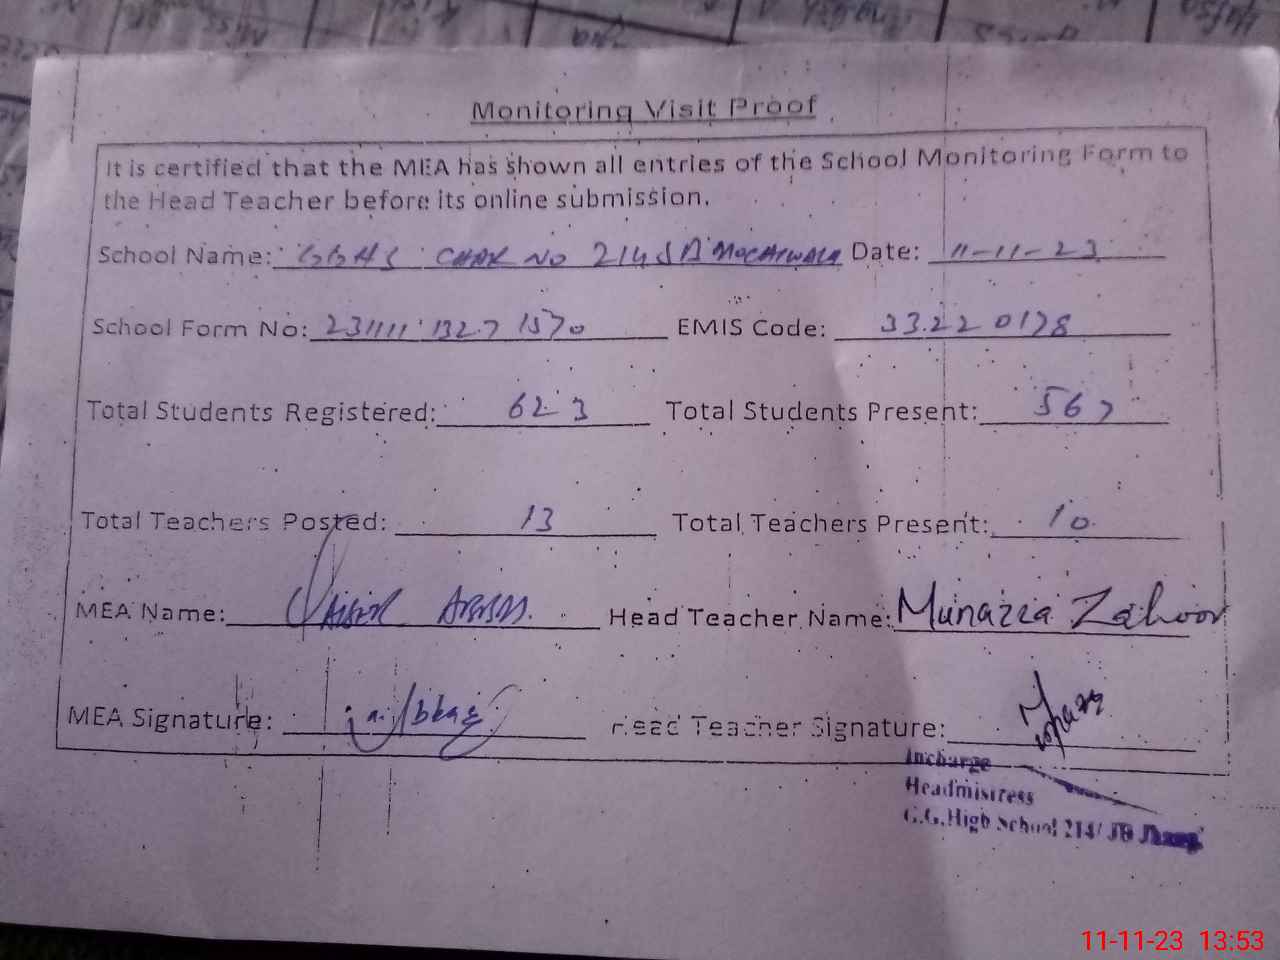 Monitoring Visit Proof
It is certified that the MEA has shown all entries of the School Monitoring Form to
the Head Teacher before its online submission.
School Name: GGHS CHAK NO 214 JB MOCHIWALA Date: 11-11-23
School Form No: 231111 132.7 1570 EMIS Code: 33.22 0178
Total Students Registered: 623 Total Students Present: 567
Total Teachers Posted: 13 Total Teachers Present: 10
MEA Name: Head Teacher Name: Munazza Zahoor
MEA Signature: Head Teacher Signature:
Incharge
Headmistress
G.G.High School 214/ JB Jhang
11-11-23 13:53